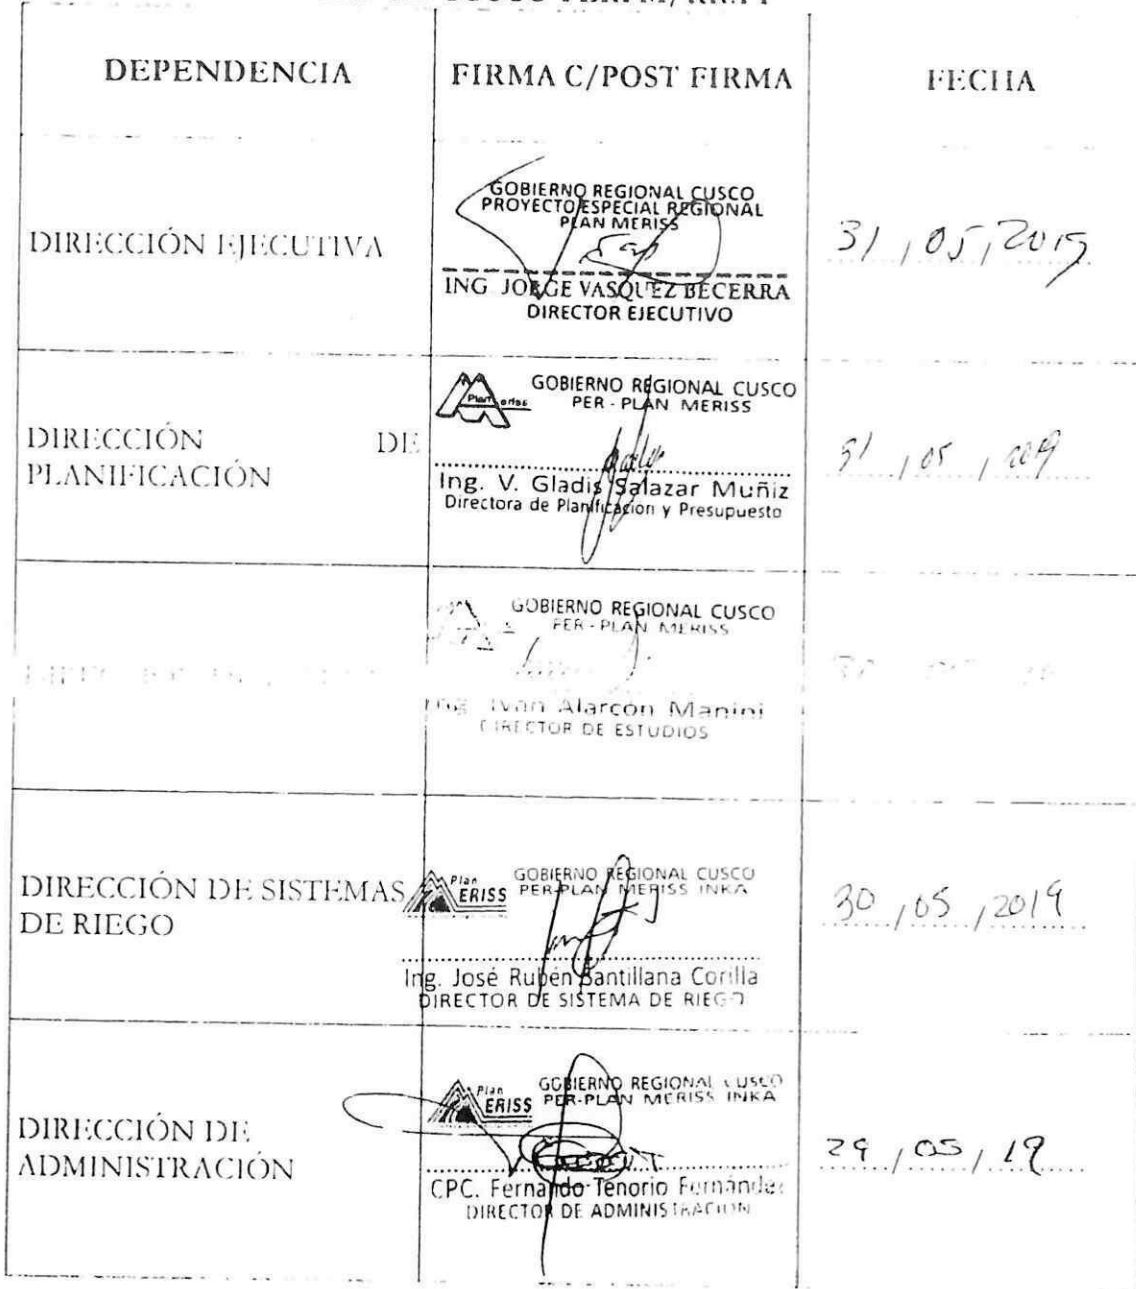 DEPENDENCIA
FIRMA C/POST FIRMA
FECHA
DIRECCIÓN EJECUTIVA
GOBIERNO REGIONAL CUSCO
PROYECTO ESPECIAL REGIONAL
PLAN MERISS
ING JORGE VASQUEZ BECERRA
DIRECTOR EJECUTIVO
31,05,2019
DIRECCIÓN DE
PLANIFICACIÓN
Plan eriss
GOBIERNO REGIONAL CUSCO
PER - PLAN MERISS
Ing. V. Gladis Salazar Muñiz
Directora de Planificación y Presupuesto
31,05,2019
GOBIERNO REGIONAL CUSCO
PER - PLAN MERISS
Ing. Ivan Alarcon Manini
DIRECTOR DE ESTUDIOS
DIRECCIÓN DE SISTEMAS
DE RIEGO
Plan
ERISS
GOBIERNO REGIONAL CUSCO
PER-PLAN MERISS INKA
Ing. José Rubén Santillana Corilla
DIRECTOR DE SISTEMA DE RIEGO
30,05,2019
DIRECCIÓN DE
ADMINISTRACIÓN
Plan
ERISS
GOBIERNO REGIONAL CUSCO
PER-PLAN MERISS INKA
CPC. Fernando Tenorio Fernández
DIRECTOR DE ADMINISTRACION
29,05,19